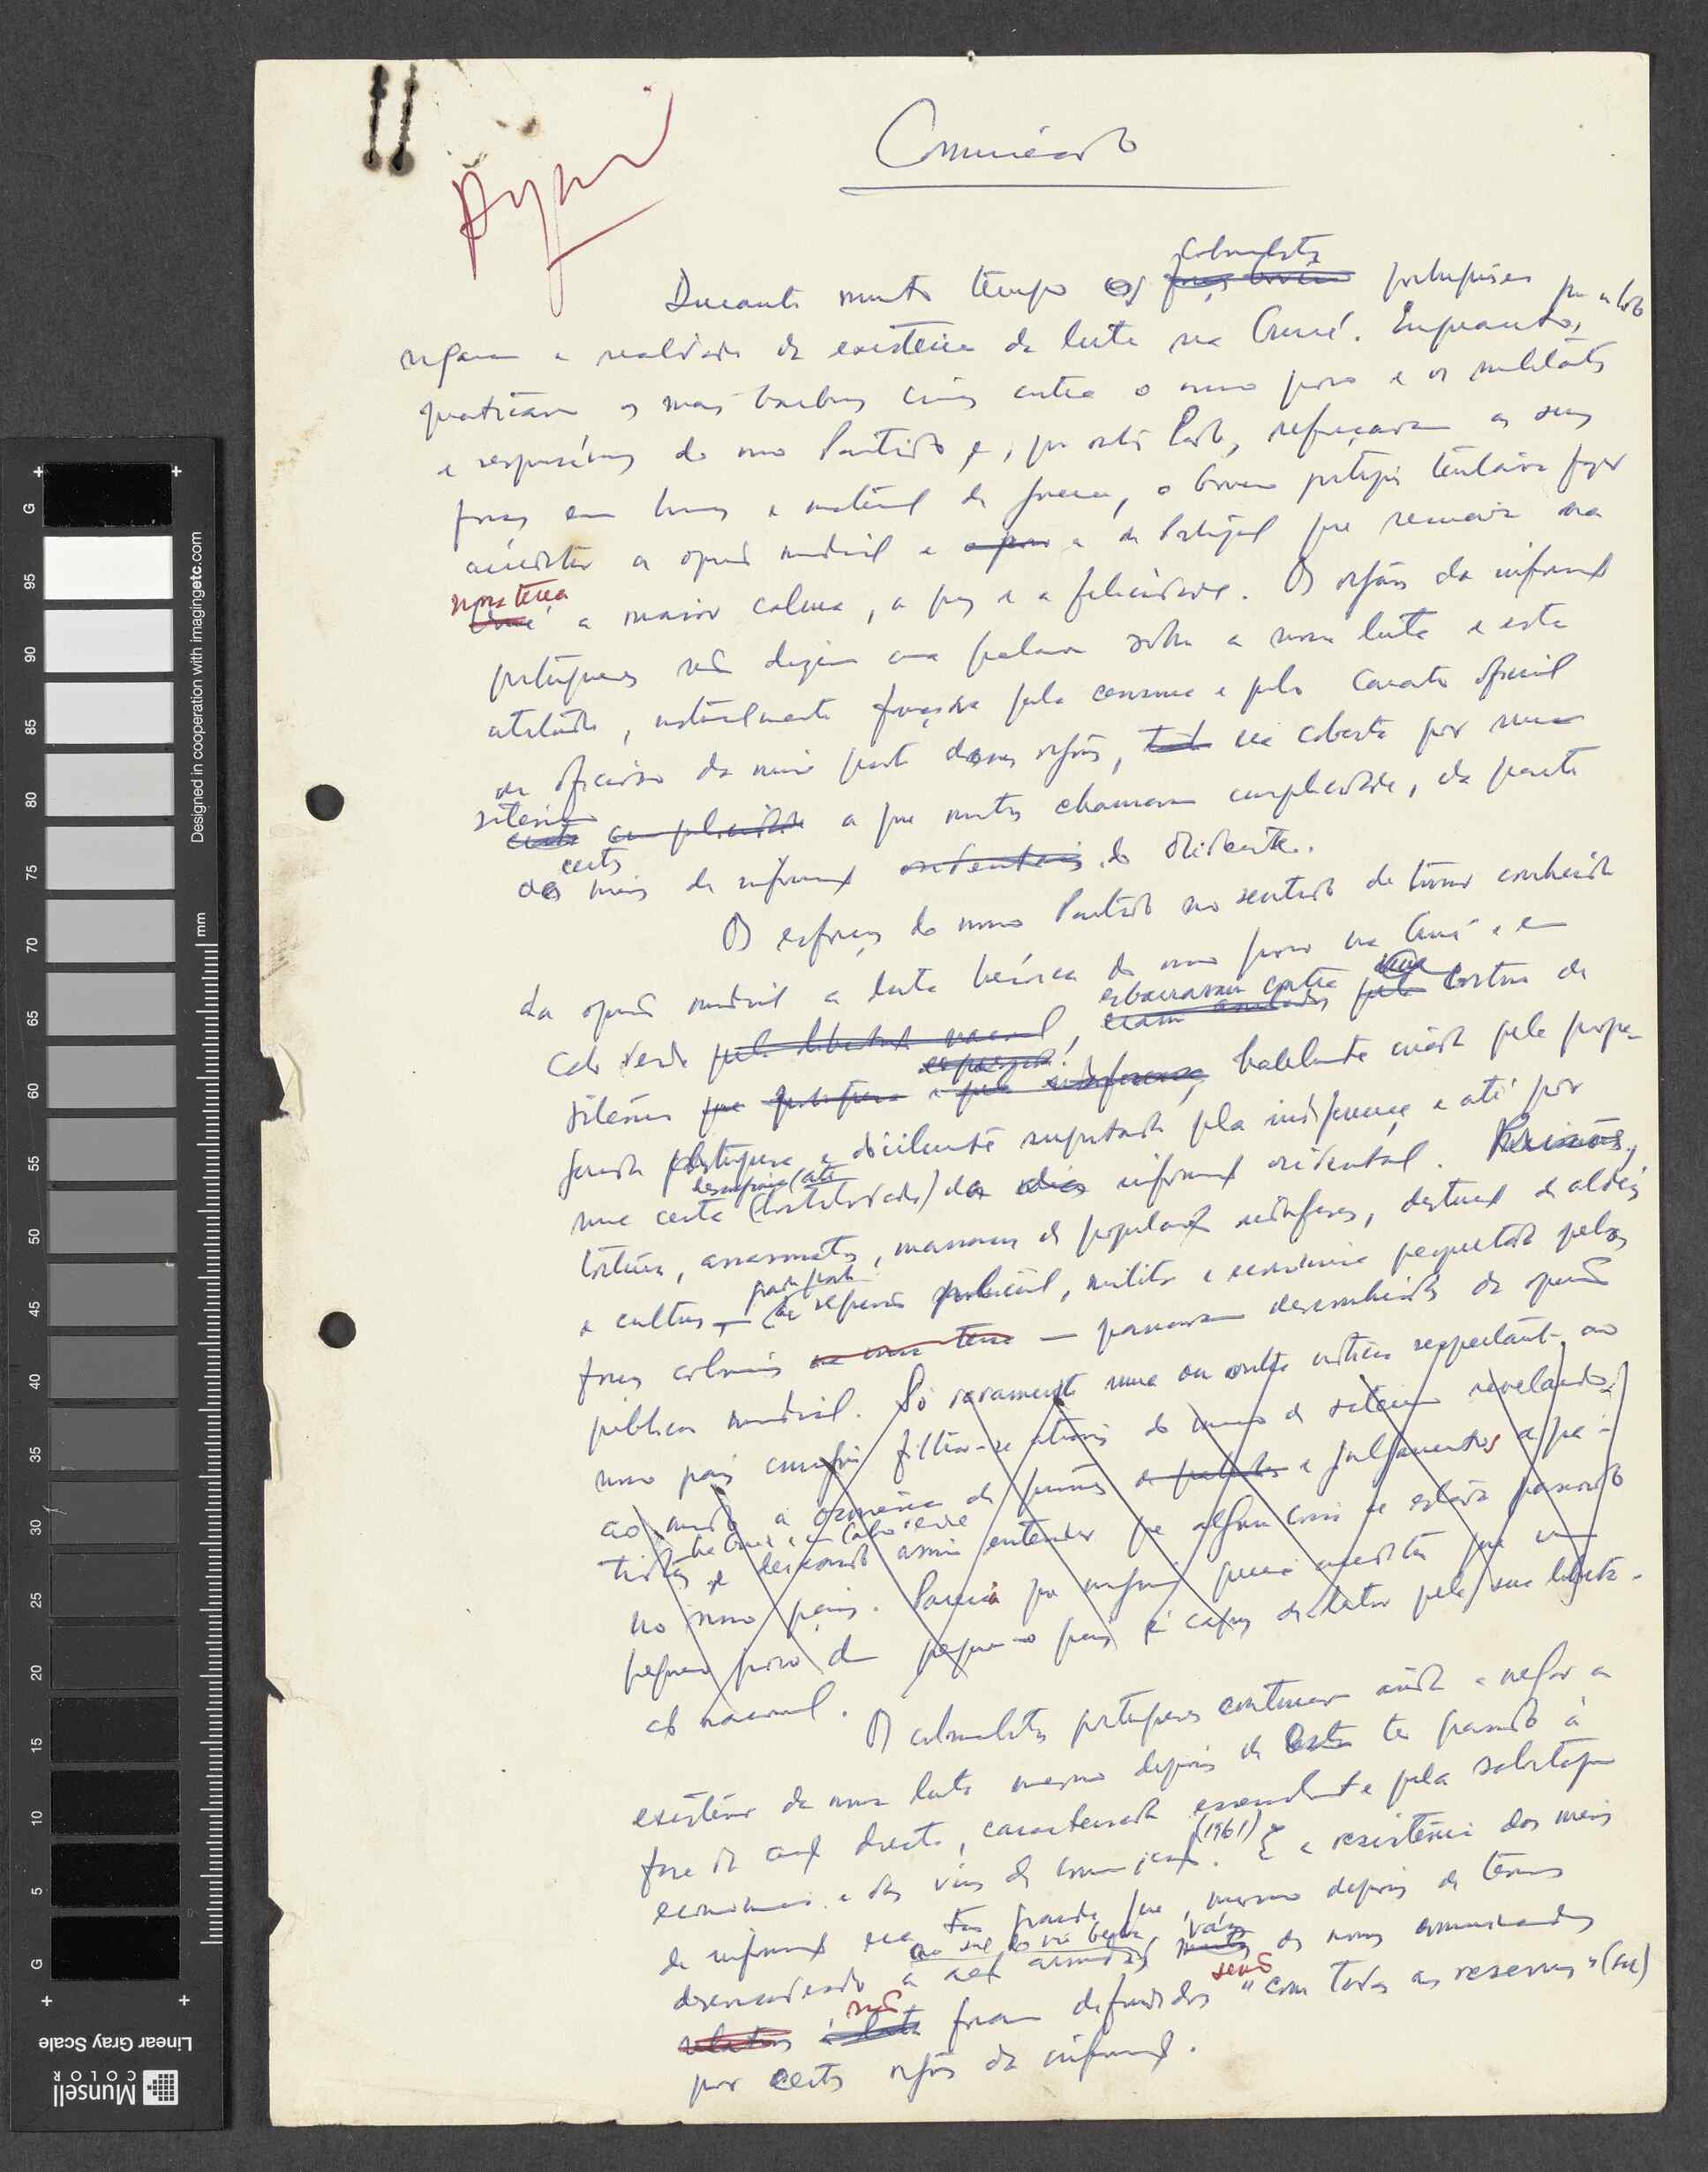 Comunicado
Durante muito tempo os colonialistas portugueses
negaram a realidade da existência da luta na Guiné. Enquanto,
praticavam os mais bárbaros crimes contra o nosso povo e os militantes
e responsáveis do nosso Partido e, por outro lado, reforçavam as suas
forças em homens e material de guerra, o Governo português tentava fazer
acreditar a opinião mundial e a de Portugal que reinava na
nossa terra
a maior calma, a paz e a felicidade. Os orgãos da informação
portugueses não diziam uma palavra sobre a nossa luta e esta
atitude, naturalmente forçada pela censura e pelo caracter oficial
ou oficioso da maior parte desses orgãos, era coberta por um
silêncio a que muitos chamaram cumplicidade, da parte
certos
dos meios de informação do Ocidente.
Os esforços do nosso Partido no sentido de tornar conhecida
da opinião mundial a luta heróica do nosso povo na Guiné e em
Cabo Verde esbarravam contra uma cortina de
silêncio habilmente criada pela propa-
ganda portuguesa e docilmente suportada pela indiferença e até por
uma certa (hostilidade) da informação ocidental. Prisões,
torturas, assassinatos, massacres de populações indefesas, destruição de aldeias
e culturas — repressão policial, militar e económica perpetrada pelas
forças coloniais — passavam desconhecidas da opinião
pública mundial. Só raramente uma ou outra notícia respeitante ao
nosso país conseguia filtrar-se através do muro de silêncio revelando,
ao mundo a ocorrência de prisões e julgamentos de pa-
na Guiné e em Cabo Verde
triotas e deixando assim entender que alguma coisa se estava passando
no nosso país. Parecia que ninguém queria acreditar que um
pequeno povo de um pequeno país é capaz de lutar pela sua liberta-
ção nacional.
Os colonialistas portugueses continuaram ainda a negar a
existência da nossa luta mesmo depois de esta ter passado à
fase da acção directa, caracterizada essencialmente pela sabotagem
económica e das vias de comunicação. (1961) E a resistência dos meios
de informação era tão grande que, mesmo depois de termos
ao sul do rio Geba, vários
desencadeado a acção armada, dos nossos comunicados
não foram difundidos senão "com todas as reservas" (sic)
por certos orgãos da informação.
Designed in cooperation with imagingetc.com
mm
Linear Gray Scale
Munsell
COLOR
G
95
90
85
80
75
70
65
60
55
50
45
40
35
30
25
20
15
10
5
G